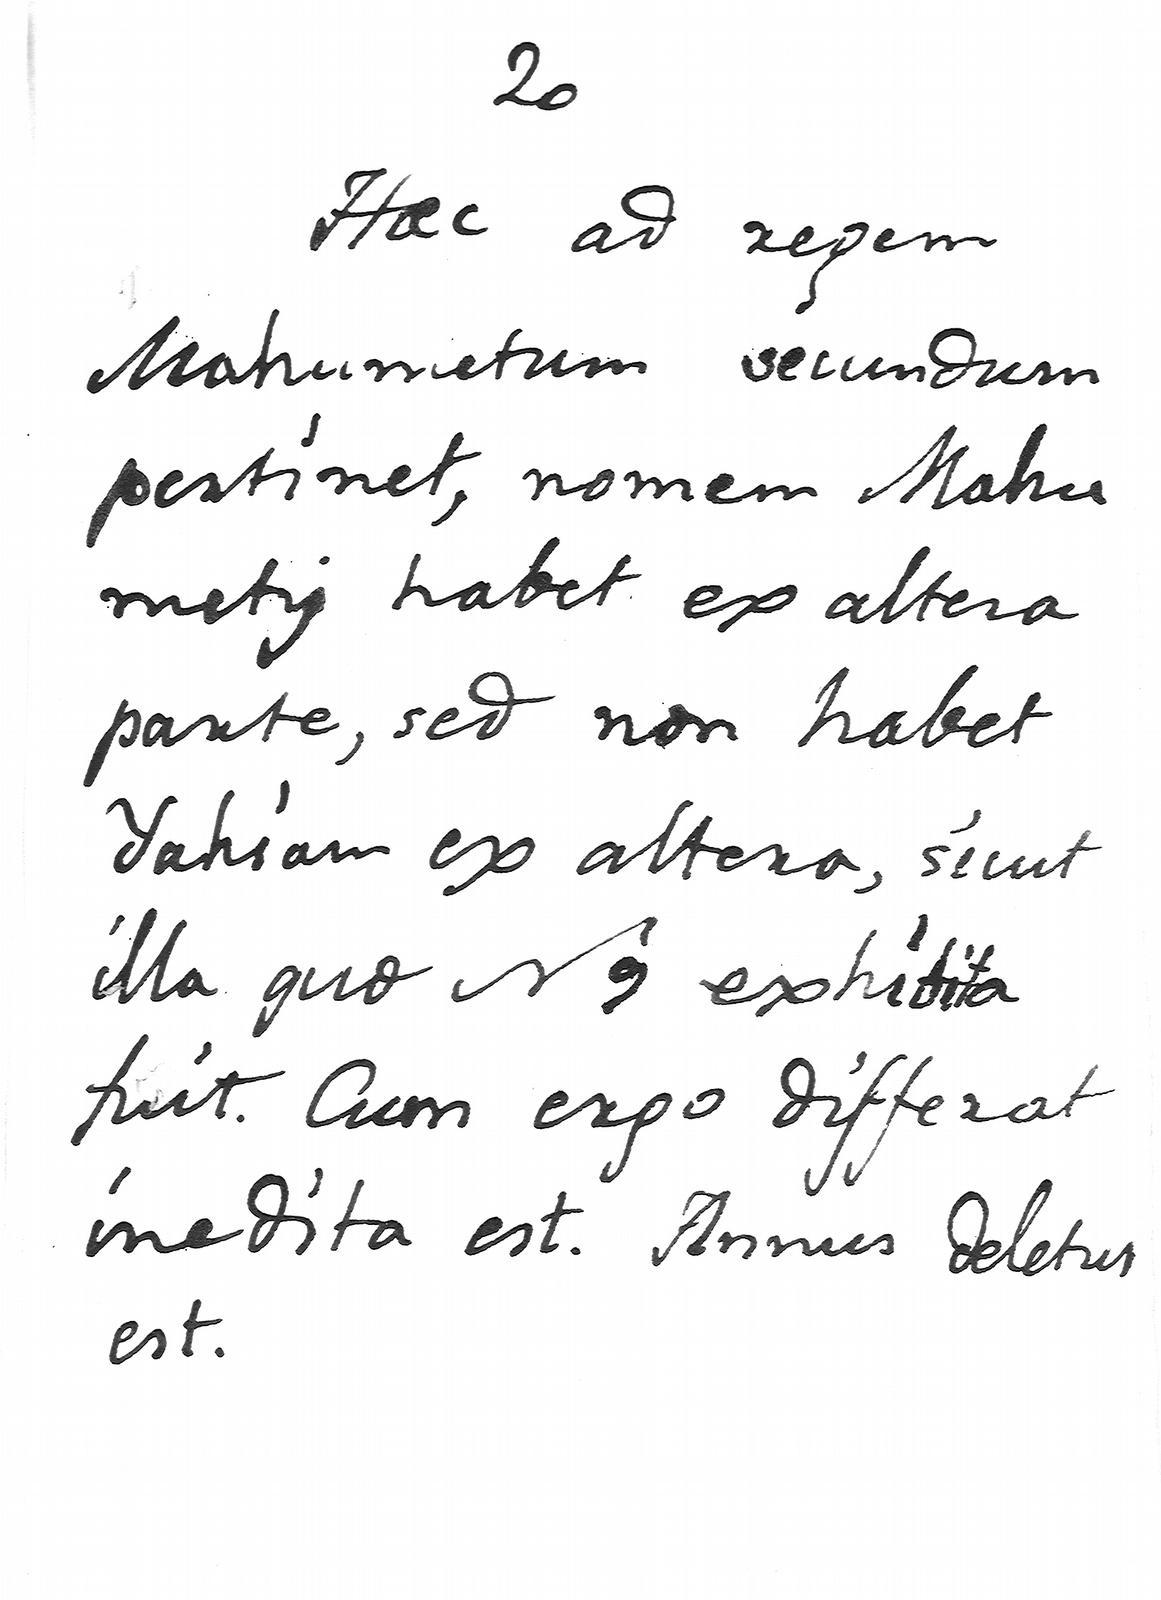 20
Hæc ad regem
Mahumetum secundum
pertinet, nomem Mahu
metij habet ex altera
parte, sed non habet
Yahiam ex altera, sicut
illa quo N 9 exhibita
fuit. Cum ergo differat
inedita est. Annus deletus
est.